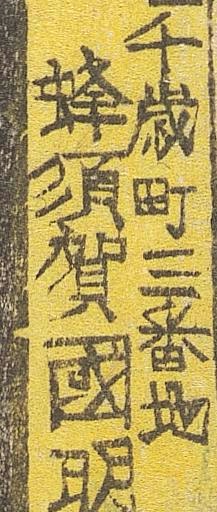 千歳町三番地
蜂須賀國明